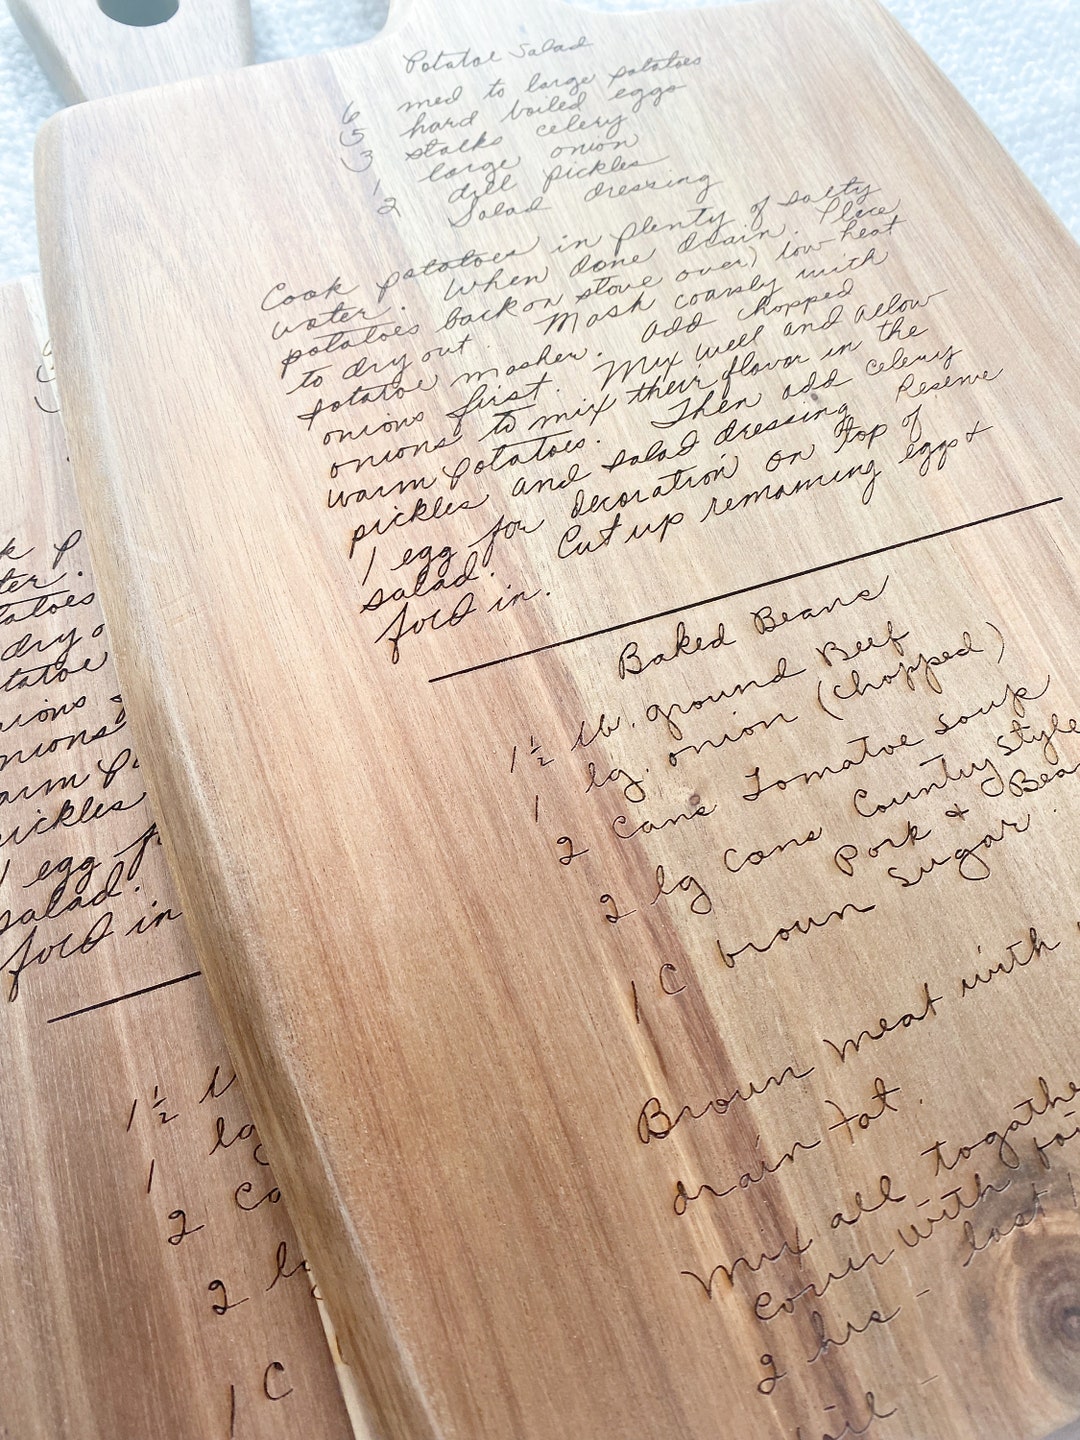 Potatoe Salad
6 med to large potatoes
5 hard boiled eggs
3 stalks celery
1 large onion
2 dill pickles
Salad dressing
Cook potatoes in plenty of salty
water. When done drain. Place
potatoes back on stove over) low heat
to dry out. Mash coarsly with
potatoe masher. Add chopped
onions first. Mix well and allow
onions to mix their flavor in the
warm potatoes. Then add celery
pickles and salad dressing Reserve
1 egg for decoration on top of
salad. Cut up remaining eggs +
fold in.
Baked Beans
1 1/2 lb. ground Beef
1 lg. onion (chopped)
2 cans Tomatoe Soup
2 lg cans Country Style
Pork + Bea
1 C broun Sugar.
Broun meat with
drain fat.
Mix all togathe
Cover with foi
2 hrs - last
ter.
atoes
dry o
tatoe
ions
nions
arm
ickles
1 egg f
salad.
fold in
1 1/2 l
1 lg
2 ca
2 lg
1 C